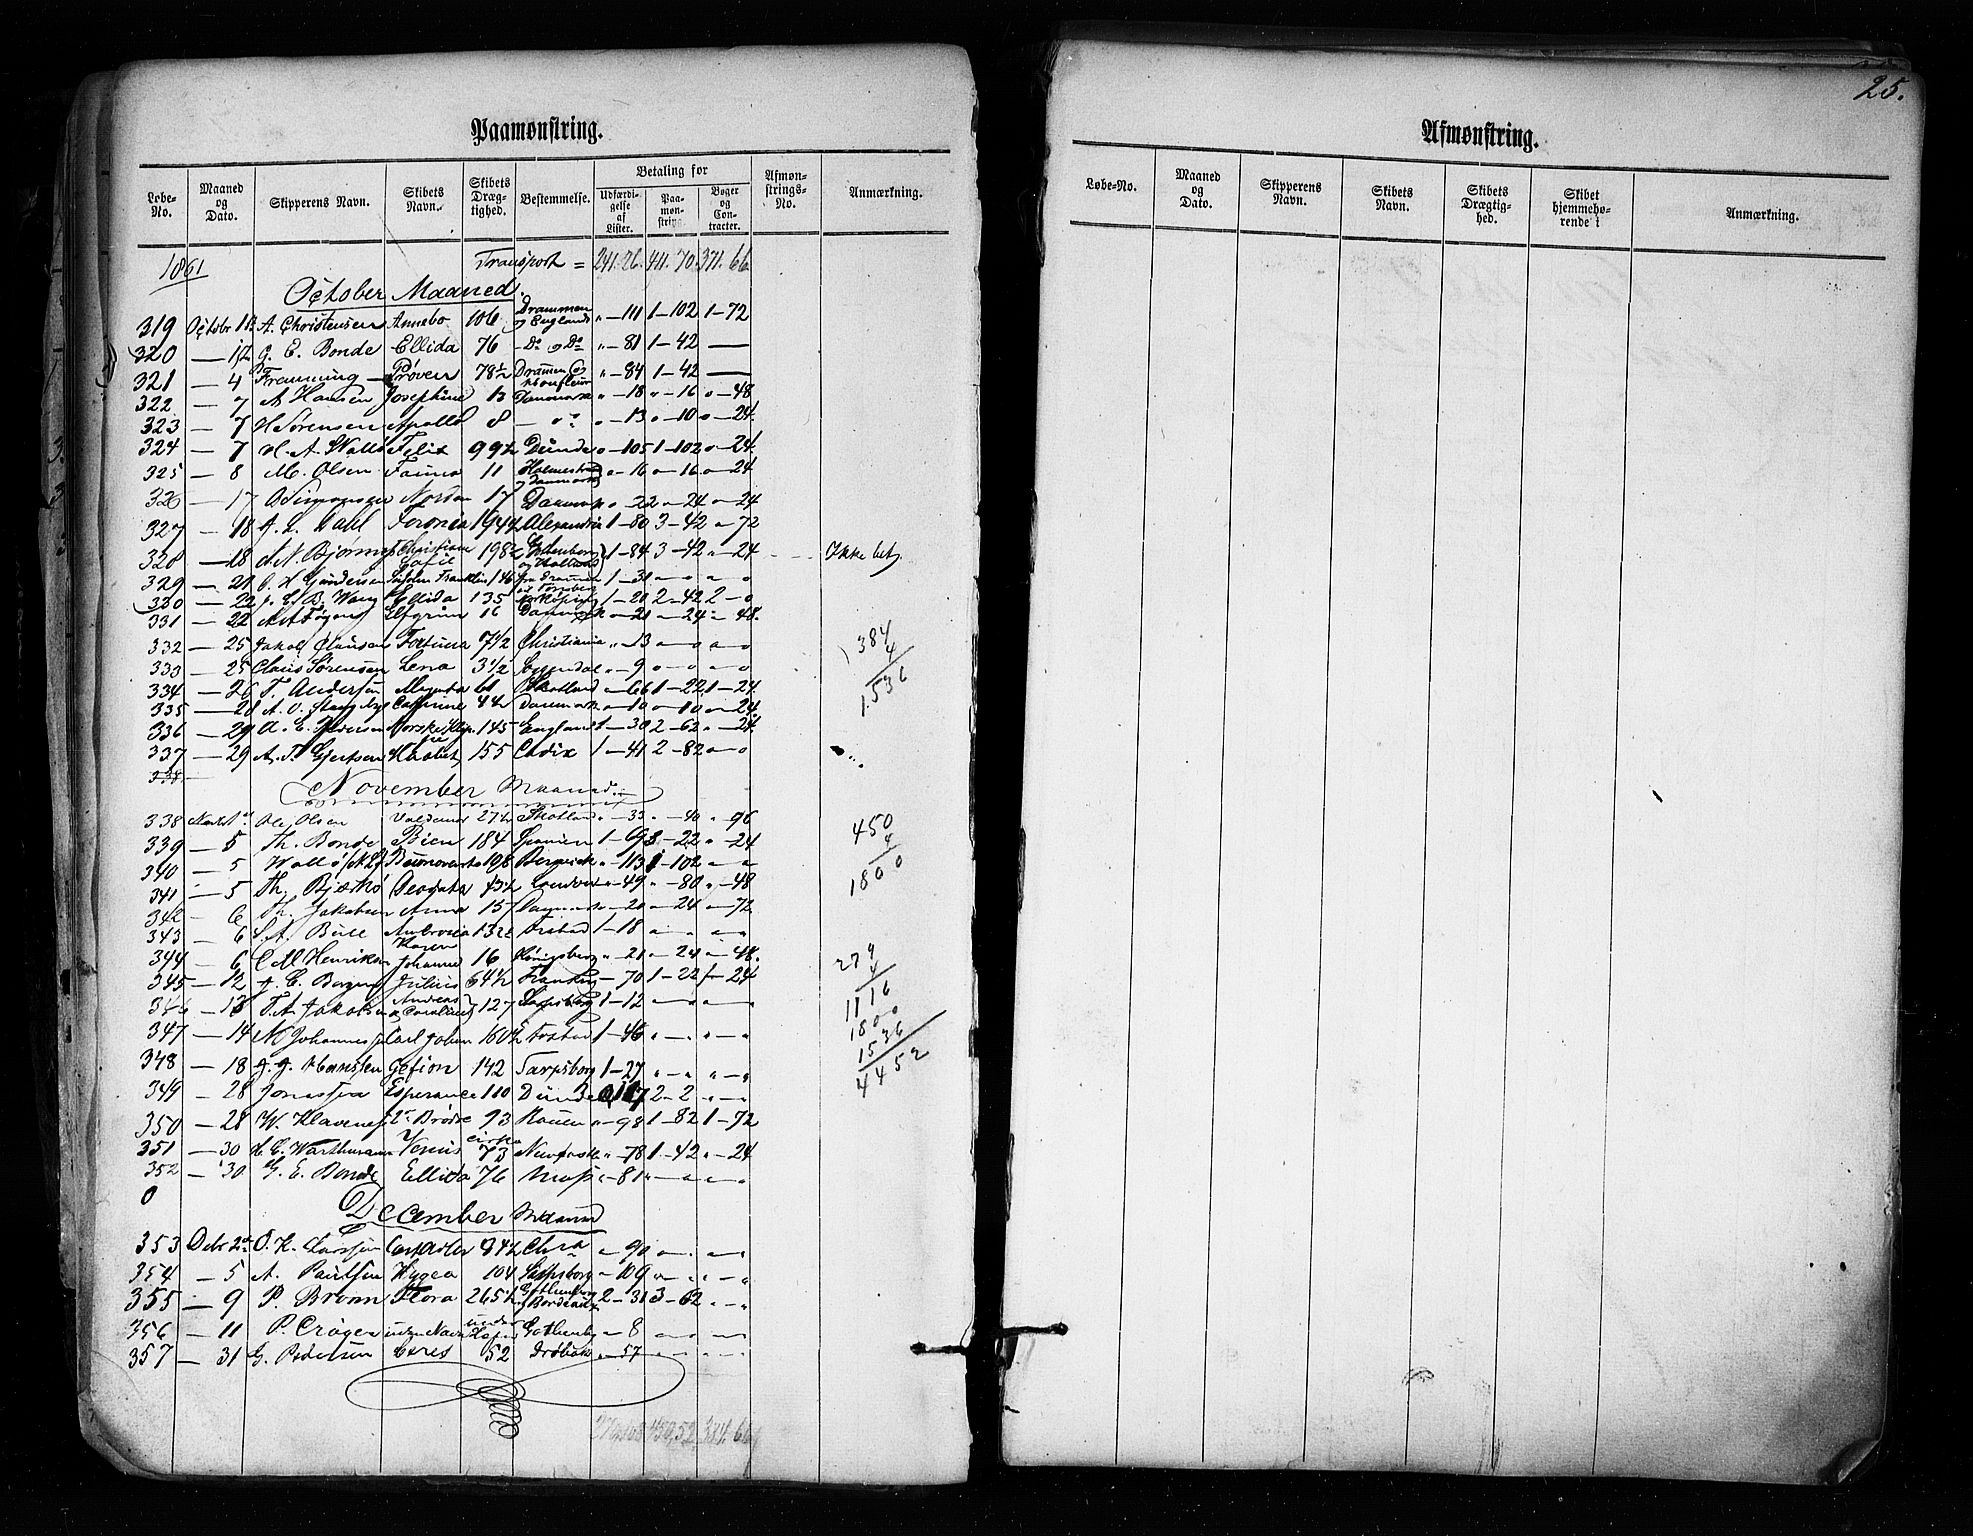 25.
Paamønstring.
Løbe-No. Maaned og Dato. Skipperens Navn. Skibets Navn. Skibets Dræg-tighed. Bestemmelse. Betaling for Udfærdi-gelse af Lister. Paa-møn-string. Bøger og Con-tracter. Afmøn-strings-No. Anmærkning.
1861 Transport = 241. 26. 411. 70. 371. 66
October Maaned.
319 October A. Christensen Annebo 106 Drammen og England " — 111 1 — 102 1 — 72
320 — 12 G. E. Bonde Ellida 76 — Do og Do " — 81 1 — 42 —
321 — 4 Framming Prøven 78½ " — 84 1 — 42 —
322 — 7 A Hansen Josephine 13 Danmark " — 18 " — 16 o — 48
323 — 7 H Sørensen Apollo 8 — " — 13 o — 10 o — 24
324 — 7 H. A. Wallø Felix 99½ Dundee o — 105 1 — 102 o — 24
325 — 8 M. Olsen Fauna 11 Holmestrand og Danmark o — 16 o — 16 o — 24
326 — 17 Nordan 17 Danmark o — 22 o — 24 o — 24
327 — 18 A. L. Dahl Foronia 194½ Alexandria 1 — 80 3 — 42 o — 72
328 — 18 A. N. Bjørnnes Christiane 198½ Gothenborg og Holland 1 — 84 3 — 42 " — 24 Ikke bet.
329 — 21 O. H. Gundersen Sir John Franklin 146 fra Drammen til Tønsberg 1 — 31 o — o o — o
330 — 22 Wang Ellida 135 1 — 20 2 — 42 2 — o
331 — 22 Elfgrim 16 Danmark o — 21 o — 24 o — 48.
332 — 25 Jakob Clausen Fortuna 7½ Christiania " — 13 o — o o — o
333 — 25 Claus Sørensen Lena 3½ " — 9 o — o o — o
334 — 26 T. Andersen 61 Skotland o — 66 1 — 22 1 — 24
335 — 28 Cathrine 4½ Danmark o — 10 o — 10 o — 24
336 — 29 A. E. Pedersen Norske 145 England 1 — 30 2 — 62 o — 24
337 — 29 A. T. Gjertsen Haabet 155 Cadix 1 — 41 2 — 82 o — o
338
November Maaned.
338 Ole Olsen Valdemar 27½ Skotland " — 33 " — 40 " — 96
339 — 5 Th. Bonde Bien 184 Spanien 1 — 69 3 — 22 " — 24
340 — 5 Wallø 108 Berwick " — 113 1 — 102 o — o
341 — 5 Th. Bjerkø Deodata 43½ London " — 49 " — 80 " — 48
342 — 6 Th. Jakobsen Anna 157 Danmark " — 20 o — 24 o — 72
343 — 6 L. A. Bull Ambrosia 132 Frestad 1 — 18 o — o o — o
344 — 6 C M Henriksen Karen Johanne 16 Königsberg " — 21 o — 24 o — 48.
345 — 12 Julius 64½ — 70 1 — 22 — 24
346 — 13 T. A. Jakobsen Andreas & Caroline 127 Sarpsborg 1 — 12 o — o o — o
347 — 14 N Johannesen Carl Johan 160½ Frestad 1 — 46 " — " " — "
348 — 18 J. J. Hansen Gefion 142 Sarpsborg 1 — 27 " — " " — "
349 — 28 Esperance 110 Dundee 117 2 — 2 " — o
350 — 28 W. Klavenes 2de Brødre 93 Rouen " — 98 1 — 82 1 — 72
351 — 30 H. C. Warthmann Venus cirka 73 " — 78 1 — 42 " — 24
352 — 30 G. E. Bonde Ellida 76 Moss " — 81 " — o o — o
0
December Maaned
353 Debr 2den O. H. Larssen 84½ Chra o — 90 o — o o — o
354 — 5 A. Paulsen Hygea 104 Sarpsborg o — 109 o — o " — "
355 — 9 P. Bronn Flora 265½ Gothenborg og Bordeaux 2 — 31 3 — 62 " — "
356 — 11 P. Crøger uden Navn under Gothenbg o — 8 o — o o — o
357 — 31 G. Pedersen Ceres 52 Drøbak " — 57 " — " " — "
459,52 384. 66
384
4
1.536
450
4
1800
279
4
1116
1800
1536
4452
Afmønstring.
Løbe-No. Maaned og Dato. Skipperens Navn. Skibets Navn. Skibets Drægtig-hed. Skibet hjemmehø-rende i Anmærkning.